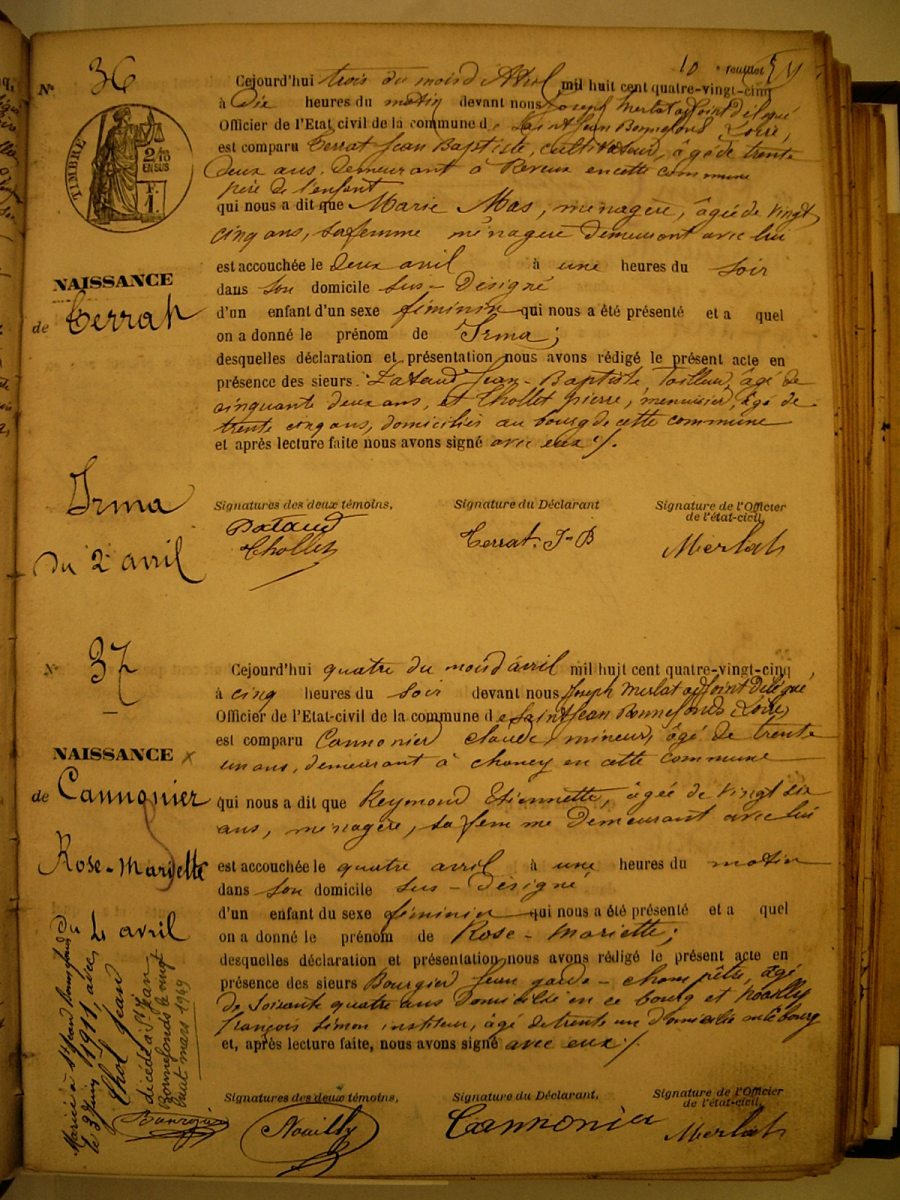 10 feuillet
N° 36
TIMBRE
2/10
EN SUS
F.
1.
NAISSANCE
de Terrat
Irma
Du 2 avril
Cejourd'hui trois du mois d'Avril mil huit cent quatre-vingt-cinq
à Dix heures du matin devant nous Joseph Merlat adjoint délégué
Officier de l'Etat civil de la commune de Saint Jean Bonnefonds Loire,
est comparu Terrat Jean Baptiste, cultivateur, âgé de trente
deux ans, demeurant à Reveux en cette commune
père de l'enfant
qui nous a dit que Marie Mas, ménagère, âgée de vingt
cinq ans, sa femme ménagère demeurant avec lui
est accouchée le deux avril à une heures du soir
dans son domicile sus-désigné
d'un enfant d'un sexe féminin qui nous a été présenté et a quel
on a donné le prénom de Irma;
desquelles déclaration et présentation nous avons rédigé le présent acte en
présence des sieurs Jean-Baptiste, tailleur, âgé de
cinquante deux ans, et Chollet pierre, menuisier, âgé de
trente cinq ans, domiciliés au bourg de cette commune
et après lecture faite nous avons signé avec eux /.
Signatures des deux témoins,
Signature du Déclarant
Signature de l'Officier
de l'état-civil,
Chollet
Terrat J-B
Merlat
N° 37
NAISSANCE
de Cannonier
Rose-Mariette
Du 4 avril
Mariée à St Jean Bonnefonds
le 3 juin 1911, avec
Chol Jean
décédée à St Jean
Bonnefonds le vingt
huit mars 1949
Cejourd'hui quatre du mois d'avril mil huit cent quatre-vingt-cinq
à cinq heures du soir devant nous Joseph Merlat adjoint délégué
Officier de l'Etat-civil de la commune de Saint Jean Bonnefonds Loire,
est comparu Cannonier Claude, mineur, âgé de trente
un ans, demeurant à Chaney en cette commune
qui nous a dit que Reymond Etiennette, âgée de vingt six
ans, ménagère, sa femme demeurant avec lui
est accouchée le quatre avril à une heures du matin
dans son domicile sus-désigné
d'un enfant du sexe féminin qui nous a été présenté et a quel
on a donné le prénom de Rose-Mariette;
desquelles déclaration et présentation nous avons rédigé le présent acte en
présence des sieurs Bourgier Jean garde-champêtre, âgé
de soixante quatre ans domicilié en ce bourg et Noailly
François Simon instituteur, âgé de trente un domicilié au bourg
et, après lecture faite, nous avons signé avec eux /.
Signatures des deux témoins,
Signature du Déclarant,
Signature de l'Officier
de l'état-civil,
Noailly
Cannonier
Merlat